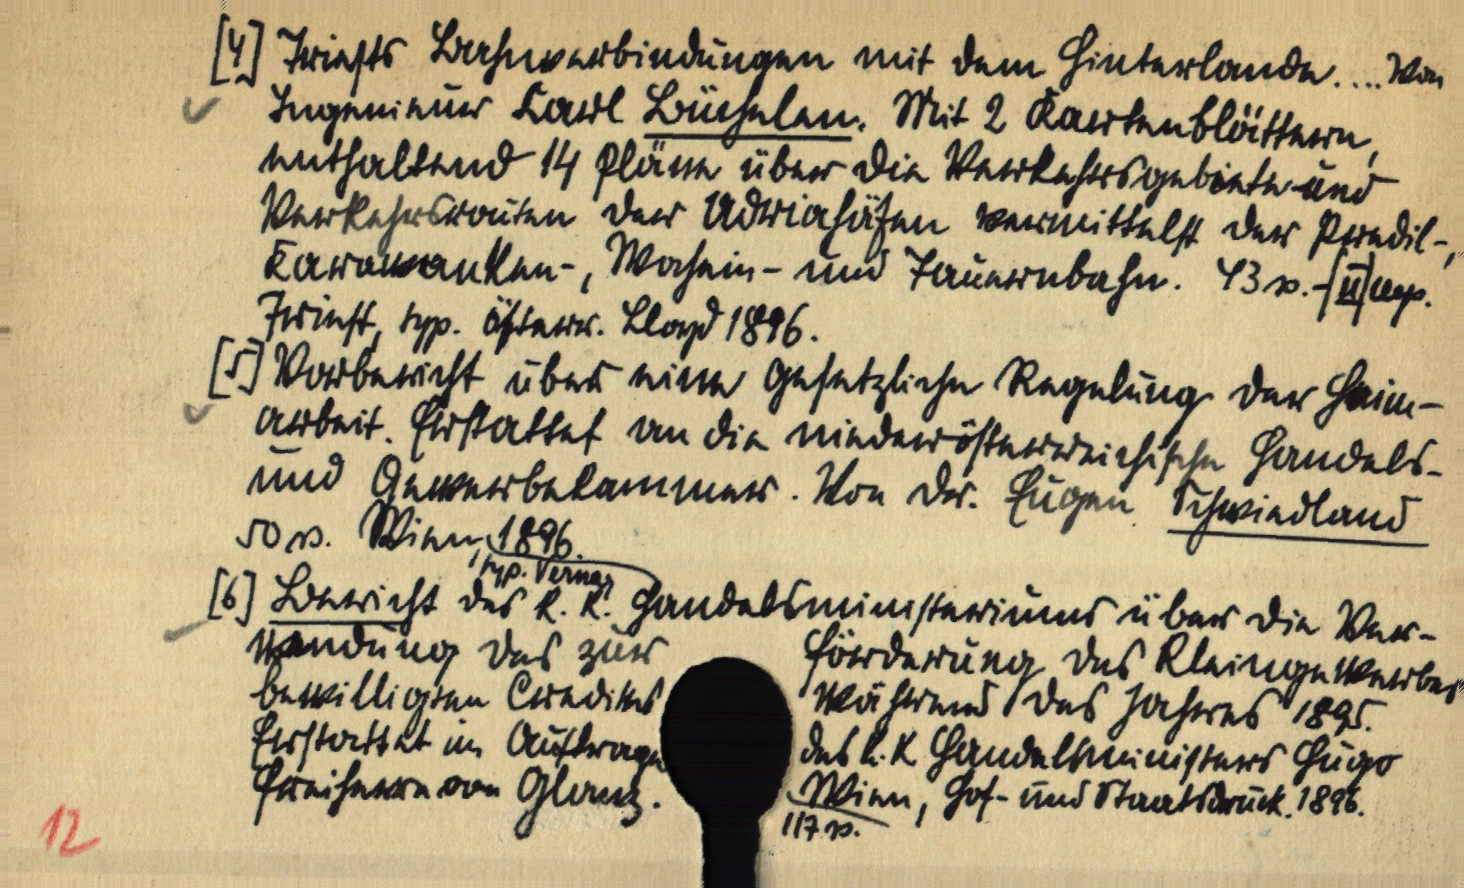 [4] Triests Bahnverbindungen mit dem Hinterlande.... Von
Ingenieur Karl Büchelen. Mit 2 Kartenblättern,
enthaltend 14 Pläne über die Verkehrsgebiete und
Verkehrsrouten der Adriahäfen vermittelst der Predil-,
Karawanken-, Wochein- und Tauernbahn. 43 p. - [II] app.
Triest, typ. österr. Lloyd 1896.
[5] Vorbericht über eine gesetzliche Regelung der Heim-
arbeit. Erstattet an die niederösterreichische Handels-
und Gewerbekammer. Von Dr. Eugen Schwiedland
50 p. Wien, 1896.
typ. Vernay
[6] Bericht des k. k. Handelsministeriums über die Ver-
wendung des zur Förderung des Kleingewerbes
bewilligten Credites während des Jahres 1895.
Erstattet im Auftrage des k. k Handelsministers Hugo
Freiherrn von Glanz. Wien, Hof- und Staatsdruck. 1896.
117 p.
12